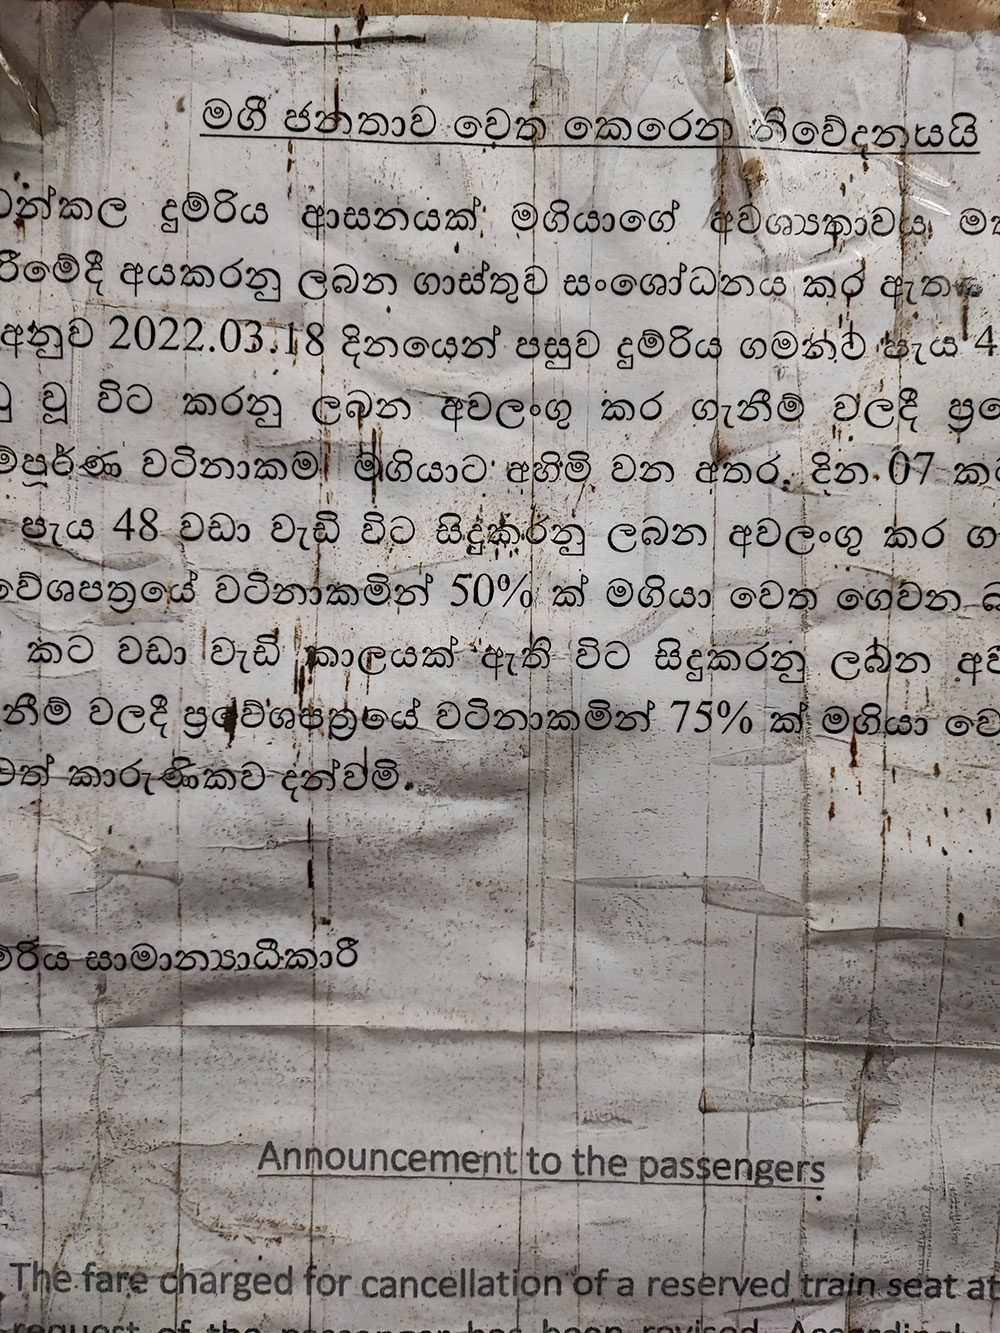 මගී ජනතාව වෙත කෙරෙන නිවේදනයයි
වන්කල දුම්රිය ආසනයක් මගියාගේ අවශ්‍යතාවය
රීමේදී අයකරනු ලබන ගාස්තුව සංශෝධනය කර ඇත
අනුව 2022.03.18 දිනයෙන් පසුව දුම්රිය ගමනට පැය 4
වූ විට කරනු ලබන අවලංගු කර ගැනීම් වලදී
ම්පූර්ණ වටිනාකම මගියාට අහිමි වන අතර, දින 07
පැය 48 වඩා වැඩි විට සිදුකරනු ලබන අවලංගු කර
වේශපත්‍රයේ වටිනාකමින් 50% ක් මගියා වෙත ගෙවන
කට වඩා වැඩි කාලයක් ඇති විට සිදුකරනු ලබන
නීම් වලදී ප්‍රවේශපත්‍රයේ වටිනාකමින් 75% ක් මගියා
කාරුණිකව දන්වමි.
ම්රිය සාමාන්‍යාධිකාරී
Announcement to the passengers
The fare charged for cancellation of a reserved train seat at
request of the passenger has been revised.